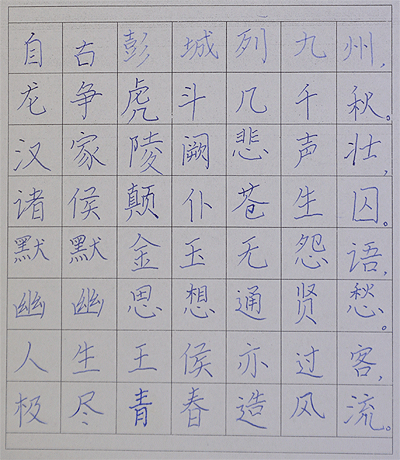 自古彭城列九州,
龙争虎斗几千秋。
汉家陵阙悲声壮,
诸侯颠仆苍生囚。
默默金玉无怨语,
幽幽思想通贤愁。
人生王侯亦过客,
极尽青春造风流。